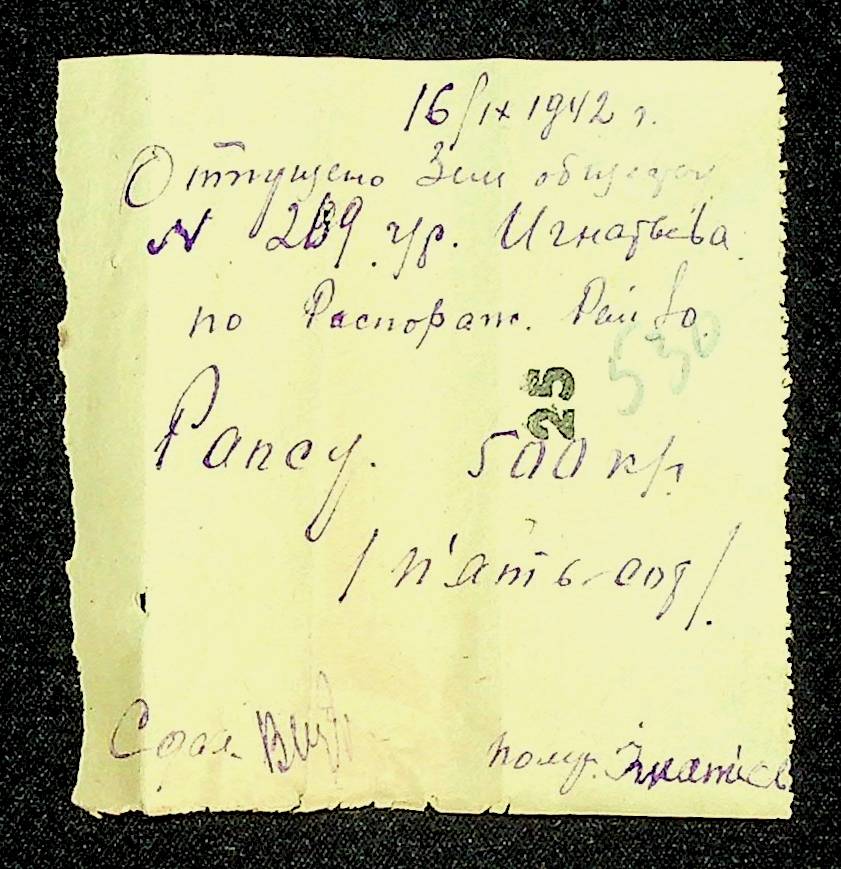 16/IX 1942 г.
Отпущено Зем обществу
N 289 гр. Игнатьева
по Распораж. Рай
530
25
Рапсу. 500 кг.
/п'ять сот/.
Сдал
получ. Ігнатіев